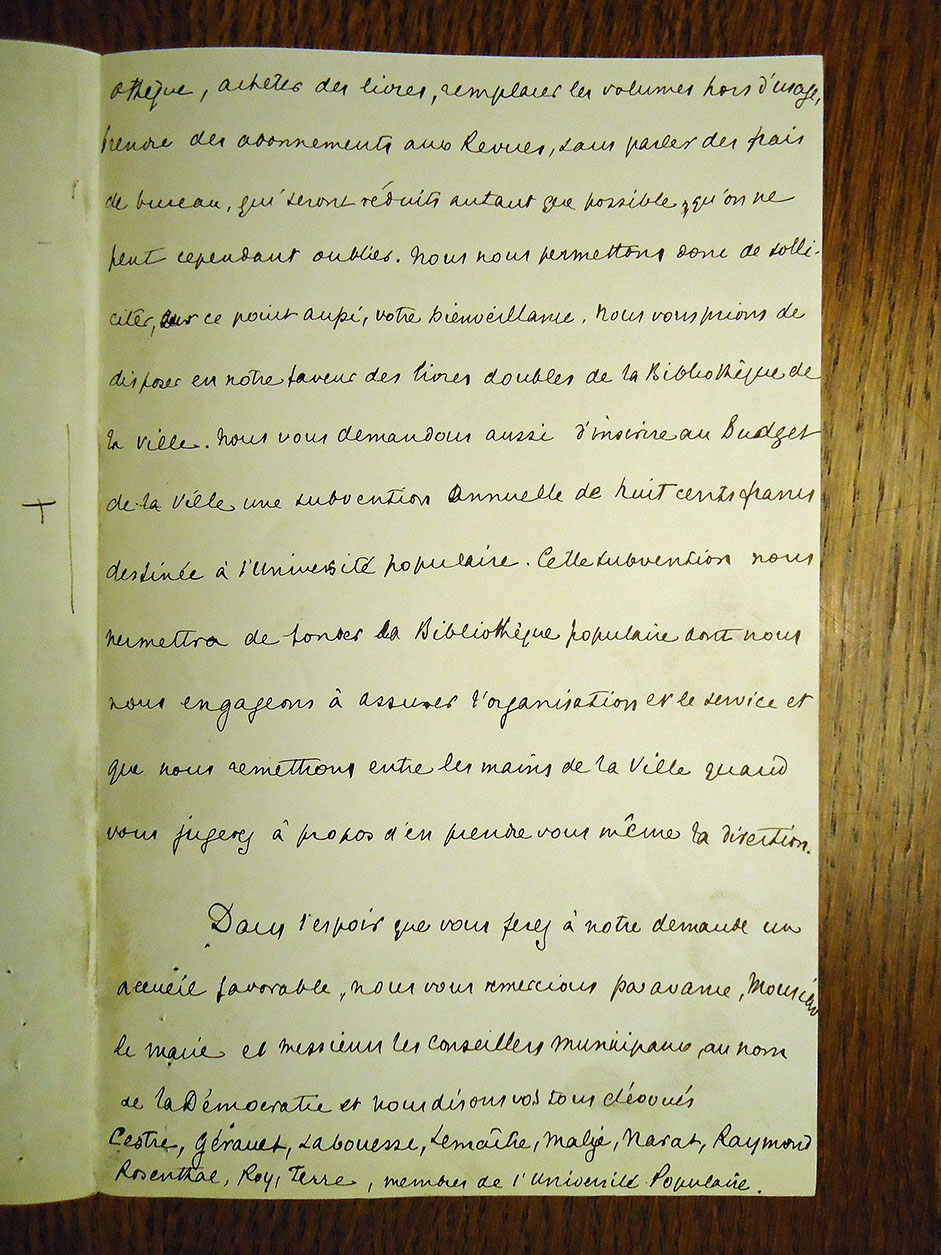 othèque, acheter des livres, remplacer les volumes hors d'usage,
prendre des abonnements aux Revues, sans parler des frais
de bureau, qui seront réduits autant que possible, qu'on ne
peut cependant oublier. Nous nous permettons donc de solli-
citer, sur ce point aussi, votre bienveillance. Nous vous prions de
disposer en notre faveur des livres doubles de la Bibliothèque de
la ville. Nous vous demandons aussi d'inscrire au Budget
de la Ville une subvention annuelle de huit cents francs
destinée à l'Université populaire. Cette subvention nous
permettra de fonder la Bibliothèque populaire dont nous
nous engageons à assurer l'organisation et le service et
que nous remettrons entre les mains de la Ville quand
vous jugerez à propos d'en prendre vous même la direction.
Dans l'espoir que vous ferez à notre demande un
accueil favorable, nous vous remercions par avance, Monsieur
le maire et messieurs les Conseillers municipaux, au nom
de la Démocratie et nous disons vos tous dévoués
Cestre, Labouesse, Lemaître, Raymond
Rosenthal, Roy, Terre, membres de l'Université Populaire.